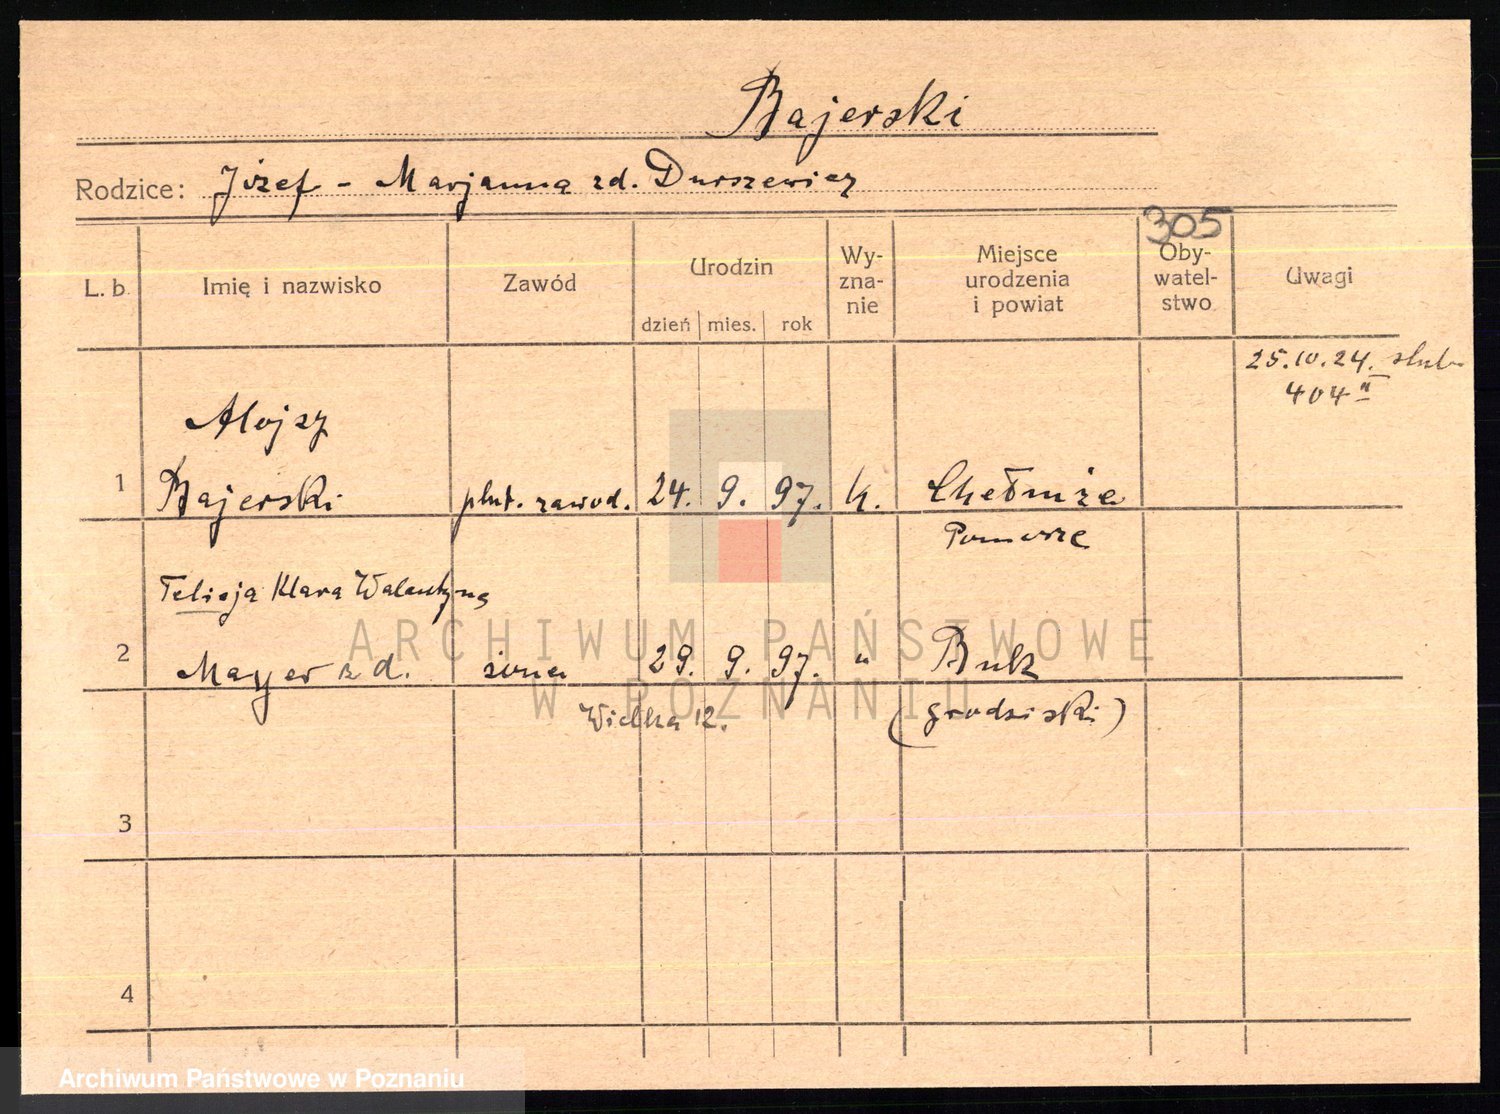 Bajerski
Rodzice: Józef - Marjanna zd. Durszewicz
305
L. b. Imię i nazwisko Zawód Urodzin Wy-zna-nie Miejsce urodzenia i powiat Oby-watel-stwo Uwagi
dzień mies. rok
25.10.24. ślub
404
Alojzy
1 Bajerski plut. zawod. 24. 9. 97. k. Chełmża
Pomorze
Felicja Klara Walentyna
2 Mayer zd. żona 29. 9. 97. " Buk
Wielka 12. (grodziski)
3
4
ARCHIWUM PAŃSTWOWE
W POZNANIU
Archiwum Państwowe w Poznaniu